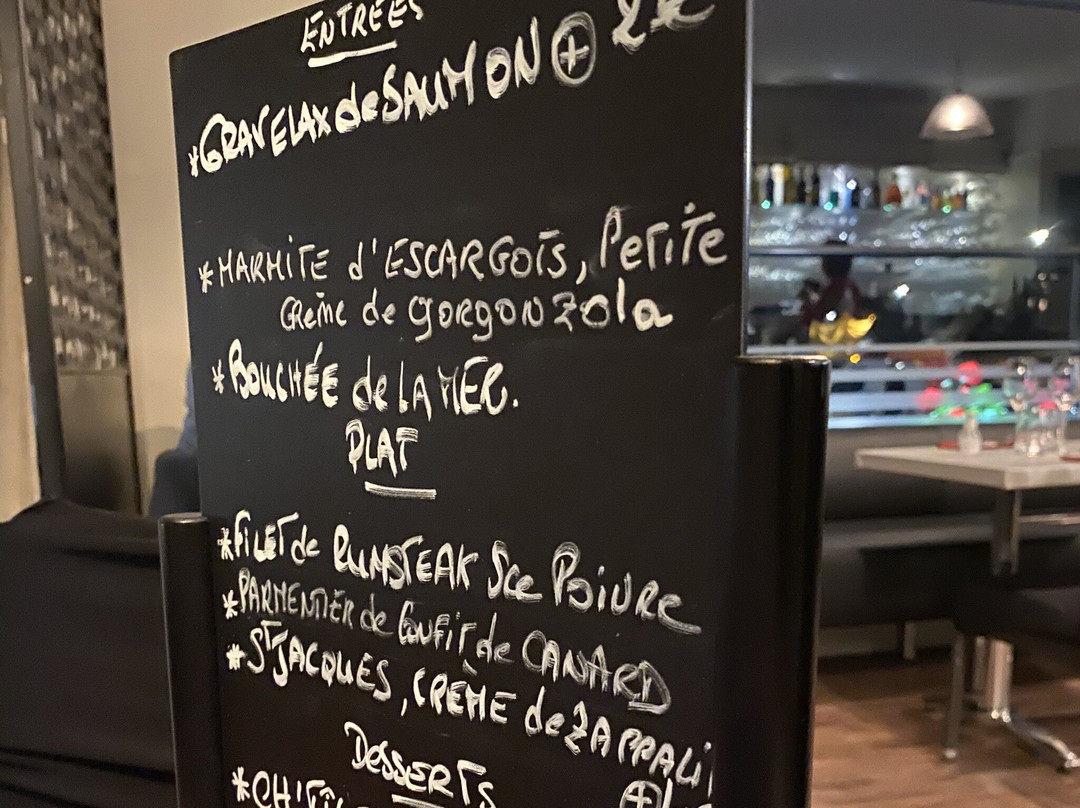 ENTRÉES
*GRAVELAX de SAUMON ⊕ 2€
*MARMITE d'ESCARGOTS, PETITE
CRÈME de GORGONZOLA
*BOUCHÉE de LA MER.
PLAT
*FILET de RUMSTEAK Sce POIVRE
*PARMENTIER de CONFIT de CANARD
*ST JACQUES, CRÈME de ZAPPALI
DESSERTS